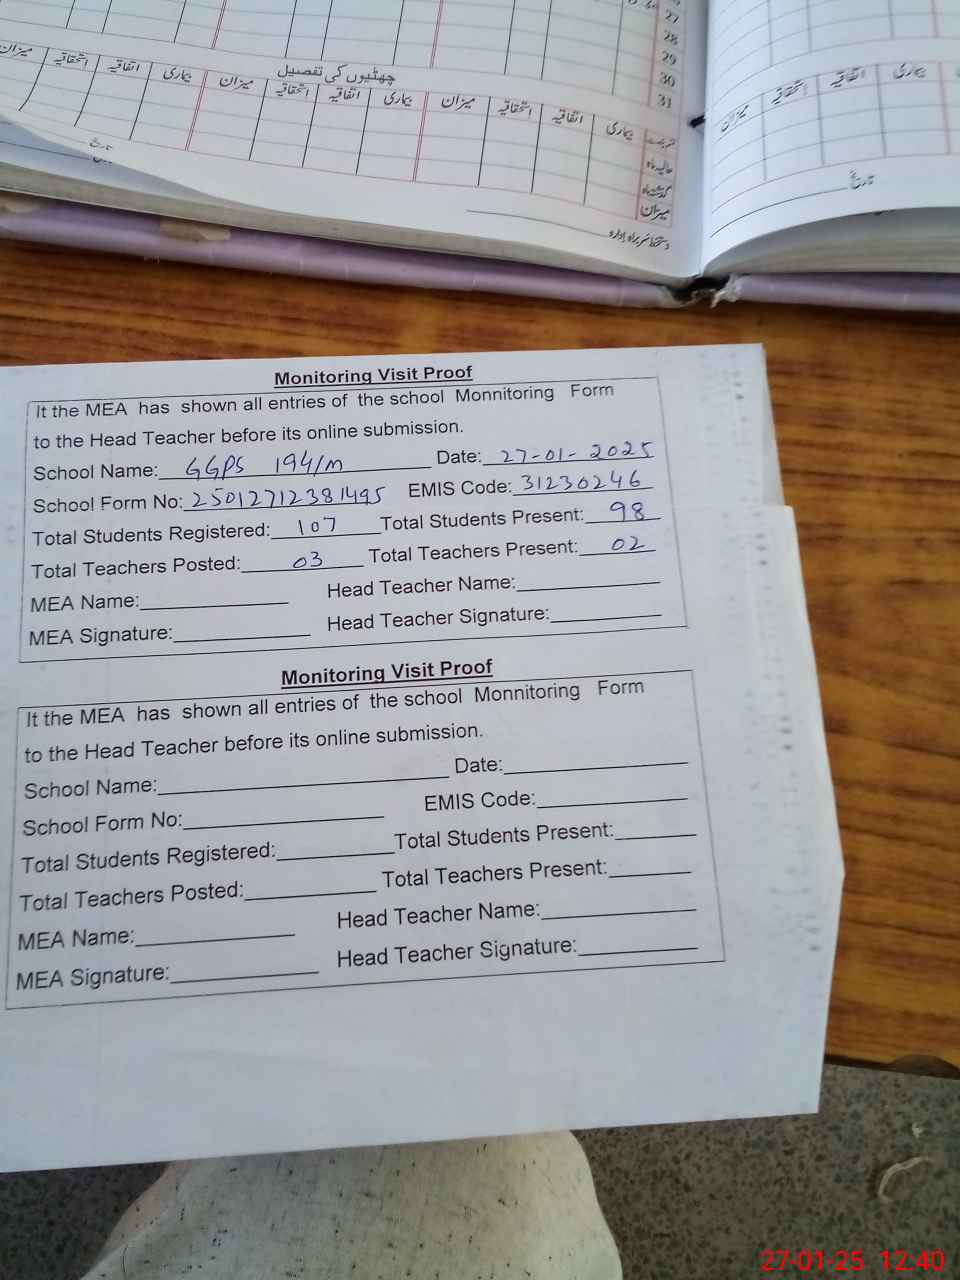 27
28
29
30
31
چھٹیوں کی تفصیل
میزان اتحقاقیہ اتفاقیہ بیماری میزان اتحقاقیہ اتفاقیہ بیماری میزان اتحقاقیہ اتفاقیہ بیماری
میزان اتحقاقیہ اتفاقیہ بیماری
حالیہ ماہ
گزشتہ ماہ
میزان
دستخط سربراہ ادارہ
تاریخ
تاریخ
Monitoring Visit Proof
It the MEA has shown all entries of the school Monnitoring Form
to the Head Teacher before its online submission.
School Name: GGPS 194/M Date: 27-01-2025
School Form No: 25012712381495 EMIS Code: 31230246
Total Students Registered: 107 Total Students Present: 98
Total Teachers Posted: 03 Total Teachers Present: 02
MEA Name: Head Teacher Name:
MEA Signature: Head Teacher Signature:
Monitoring Visit Proof
It the MEA has shown all entries of the school Monnitoring Form
to the Head Teacher before its online submission.
School Name: Date:
School Form No: EMIS Code:
Total Students Registered: Total Students Present:
Total Teachers Posted: Total Teachers Present:
MEA Name: Head Teacher Name:
MEA Signature: Head Teacher Signature:
27-01-25 12:40